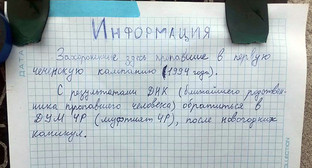 ИНФОРМАЦИЯ
Захоронение здесь пропавшие в первую
чеченскую кампанию (1994 года).
С результатами ДНК (ближайшего родствен-
ника пропавшего человека) обратиться в
ДУМ ЧР (муфтият ЧР), после новогодних
каникул.
DATA